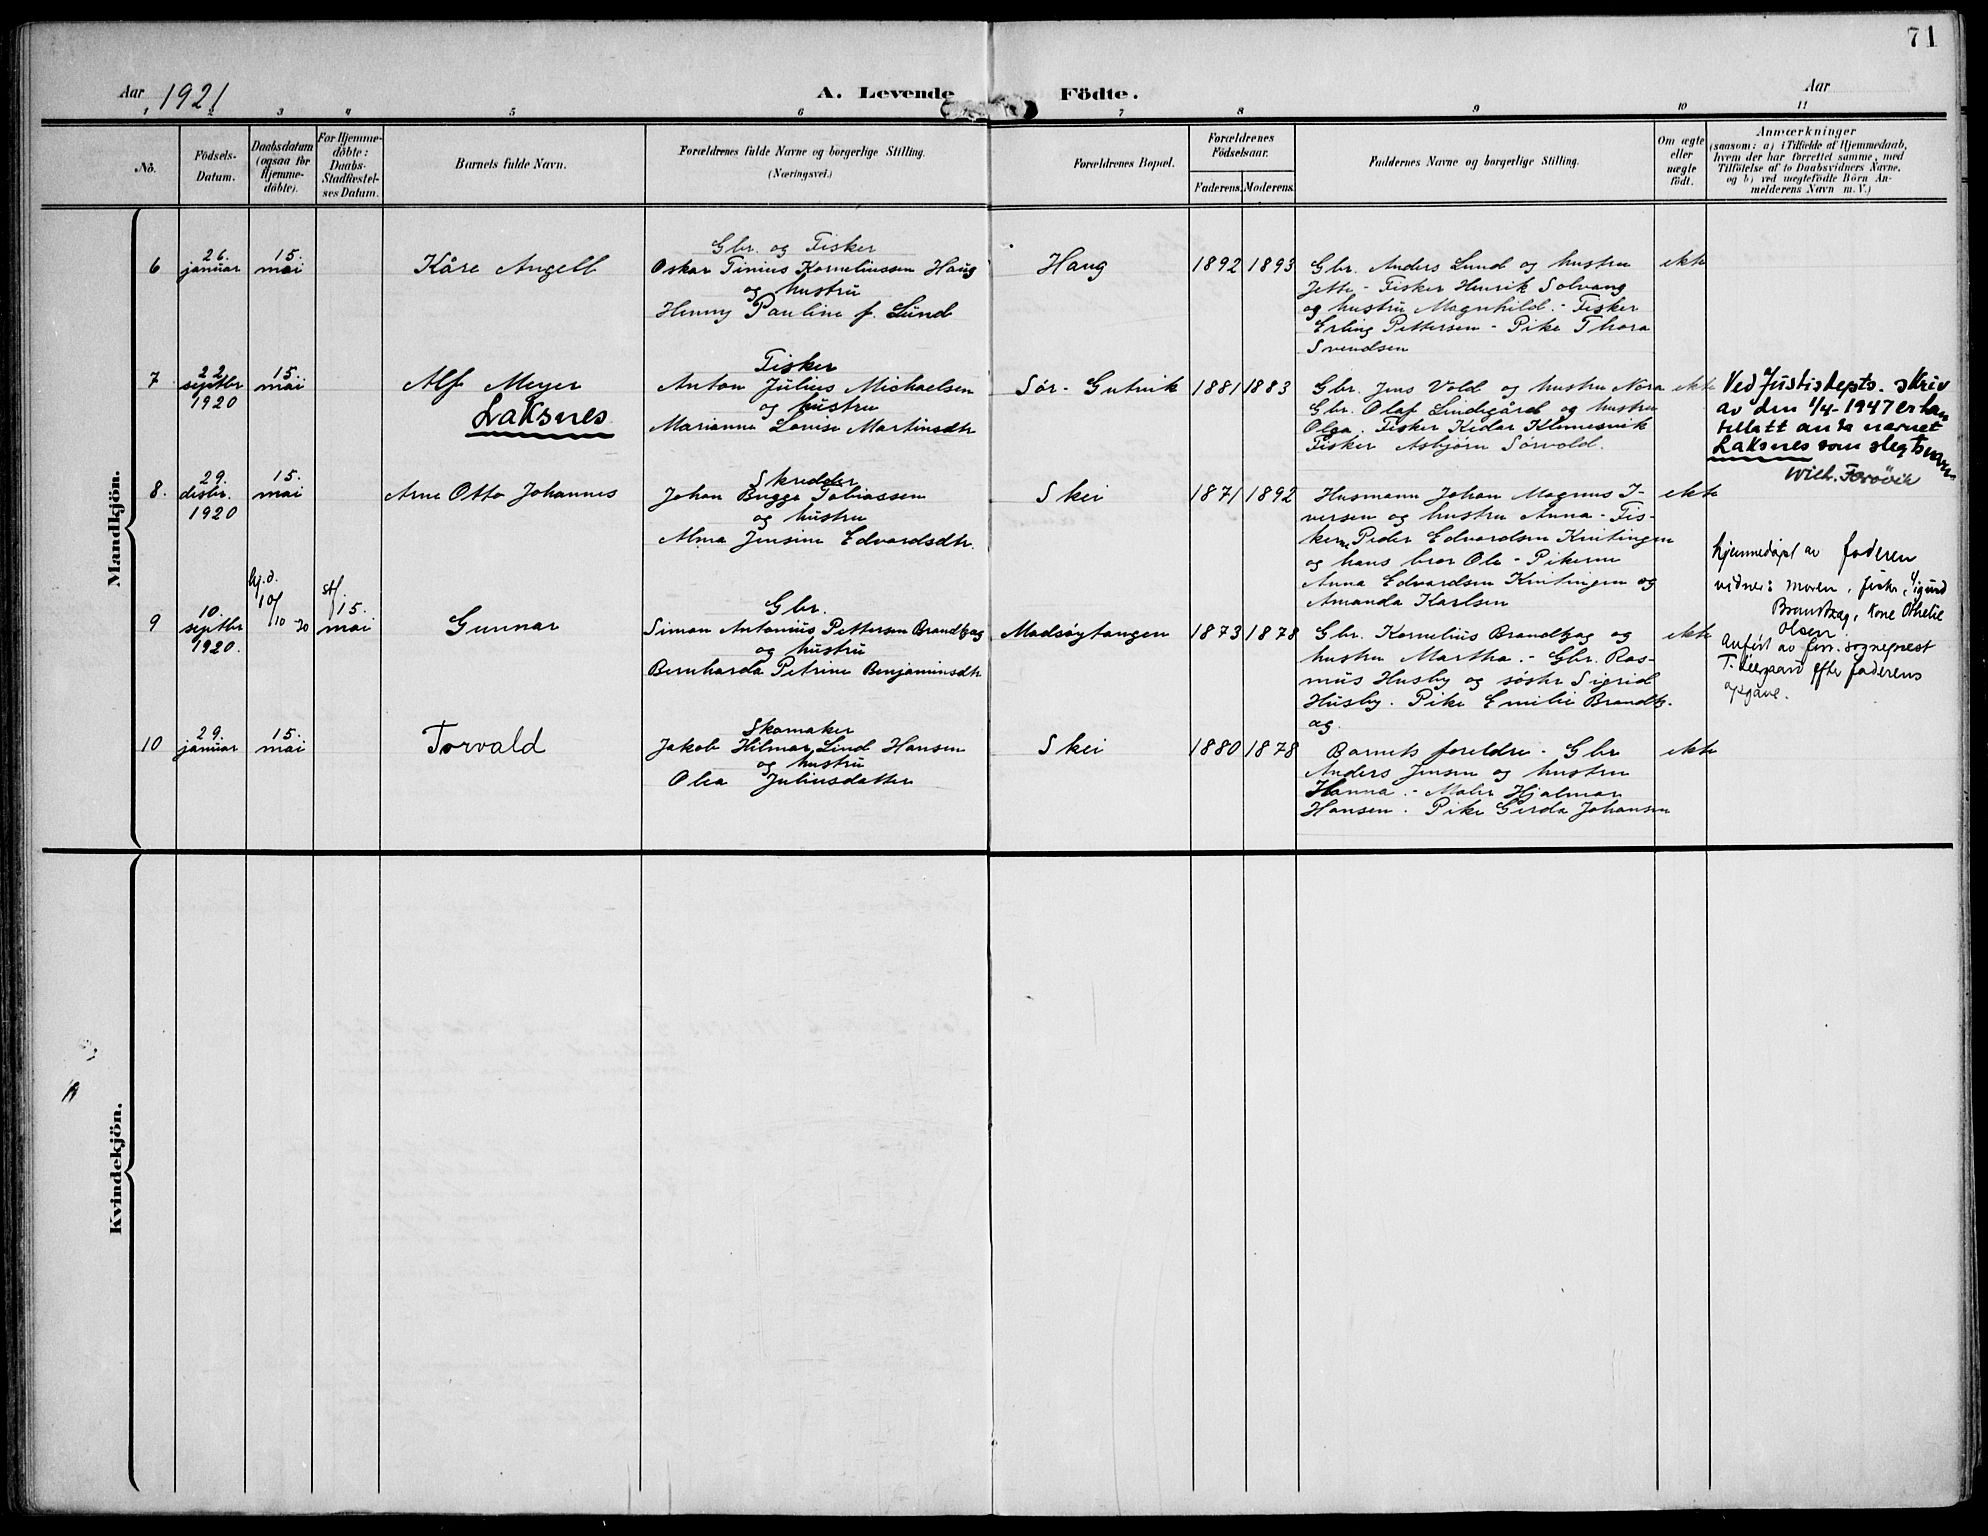 71
Aar 1921
A. Levende Födte.
Aar
1 2 3 4 5 6 7 8 9 10 11
No.
Födsels-
Datum.
Daabsdatum
(ogsaa for
Hjemme-
döbte).
For Hjemme-
döbte:
Daabs-
Stadfæstel-
ses Datum.
Barnets fulde Navn.
Forældrenes fulde Navne og borgerlige Stilling.
(Næringsvei.)
Forældrenes Bopæl.
Forældrenes
Födselsaar.
Faderens. Moderens.
Faddernes Navne og borgerlige Stilling.
Om ægte
eller
uægte
födt.
Anmærkninger
(saasom: a) i Tilfælde af Hjemmedaab,
hvem der har forrettet samme, med
Tilföielse af to Daabsvidners Navne,
og b) ved uægtefödte Börn An-
melderens Navn m. V.)
Mandkjön.
6
26.
januar
15.
mai
Kåre Angell
Gbr. og Fisker
Oskar Tinius Korneliussen Haug
og hustru
Henny Pauline f. Lund
Haug
1892 1893
Gbr. Anders Lund og hustru
Jette - Fisker Henrik Solvang
og hustru Magnhild. - Fisker
Erling Pettersen - Pike Thora
Svendsen
ekte
7
22.
septbr
1920
15.
mai
Alf Meyer
Laksnes
Fisker
Anton Julius Michaelsen
og hustru
Marianne Lovise Martinsdtr
Sør-Gutvik
1881 1883
Gbr. Jens Vold og hustru Nora
Gbr. Olaf Lindegård og hustru
Olga. Fisker Kidar Klemesvik
Fisker Asbjørn Sørvold.
ekte
Ved Justisdepts. skriv
av den 1/4-1947 er han
tillatt anta navnet
Laksnes som slegtsnavn
Wilh. Forøvik
8.
29.
desbr.
1920
15.
mai
Arne Otto Johannes
Skredder
Johan Bugge Tobiassen
og hustru
Alma Jensine Edvardsdtr.
Skei
1871 1892
Husmann Johan Magnus I-
versen og hustru Anna - Fis-
kerne Peder Edvardsen Kvitingen
og hans bror Ole - Pikerne
Anna Edvardsen Kvitingen og
Amanda Karlsen
ekte
9
10.
septbr
1920.
hj.d.
10/10-20
stf.
15.
mai
Gunnar
Gbr.
Simon Antonius Pettersen Brandtzag
og hustru
Bernharda Petrine Benjaminsdtr
Madsøytangen
1873 1878
Gbr. Kornelius Brandtzag og
hustru Martha. - Gbr. Ras-
mus Husby og søster Sigrid
Husby. Pike Emilie Brandtz-
ag.
ekte
hjemmedøpt av faderen
vidner: moren, fisker Sigurd
Brandtzag, kone Othelie
Olsen.
Anført av forr. sogneprest
efter faderens
opgave.
10
29.
januar
15.
mai
Torvald
Skomaker
Jakob Hilmar Lind Hansen
og hustru
Olea Juliusdatter
Skei
1880 1878
Barnets foreldre - Gbr
Anders Jensen og hustru
Hanna. - Maler Hjalmar
Hansen. Pike Gerda Johansen
ekte
Kvindekjön.